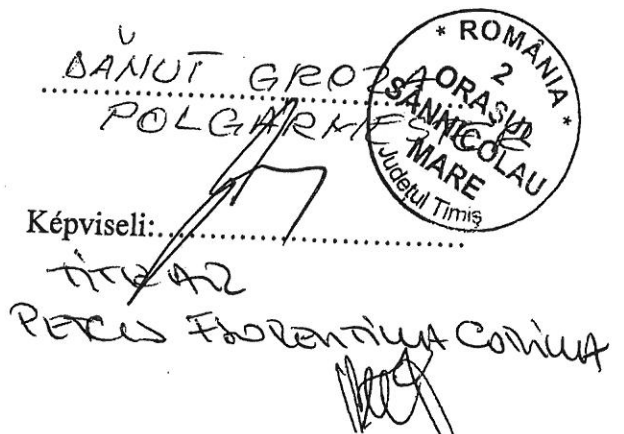 DĂNUȚ GROZA
POLGÁRMESTER
* ROMÂNIA *
2
ORAȘUL
SÂNNICOLAU
MARE
Județul Timiș
Képviseli:
FLORENTINA CORINA